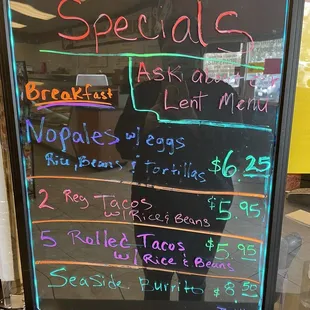 Specials
Ask about
Lent Menu
Breakfast
Nopales w/ eggs
Rice, Beans & Tortillas $6.25
2 Reg Tacos
w/ Rice & Beans $5.95
5 Rolled Tacos
w/ Rice & Beans $5.95
SeaSide Burrito $8.50